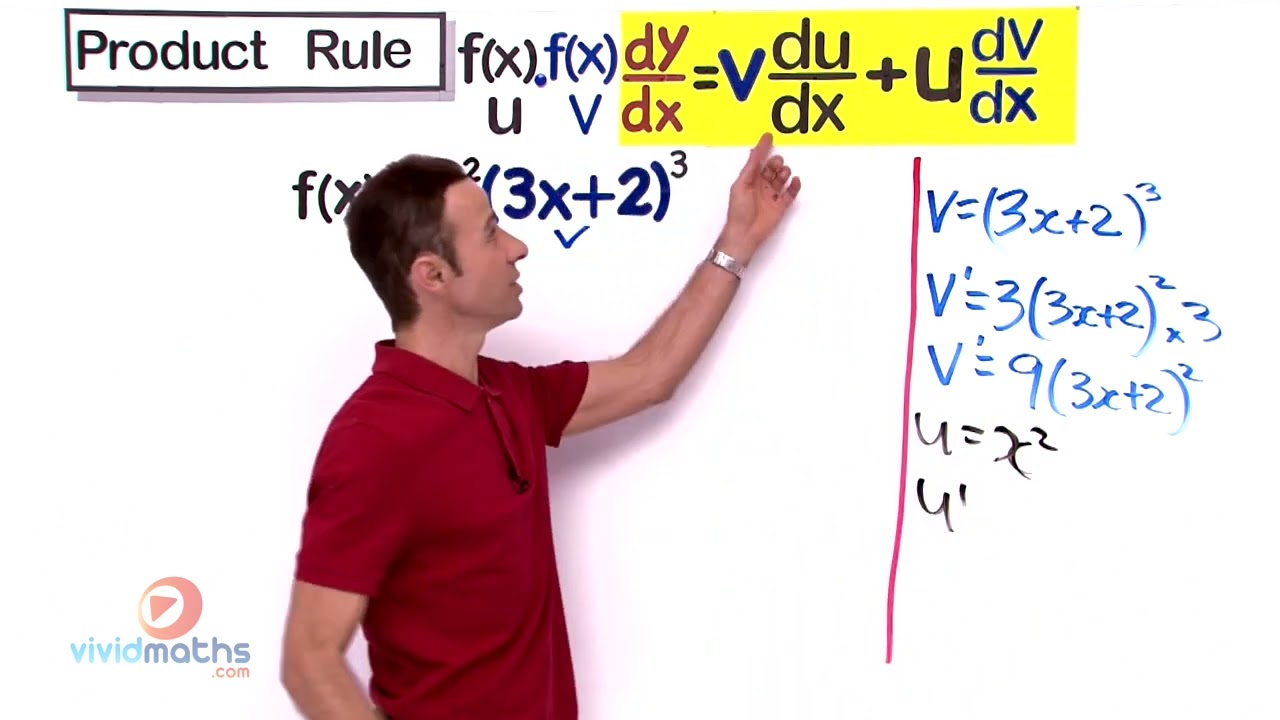 Product Rule f(x).f(x) dy/dx = v du/dx + u dv/dx
u v
f(x) ²(3x+2)³
v
V=(3x+2)³
V'=3(3x+2)²×3
V'=9(3x+2)²
u=x²
u'
vividmaths
.com